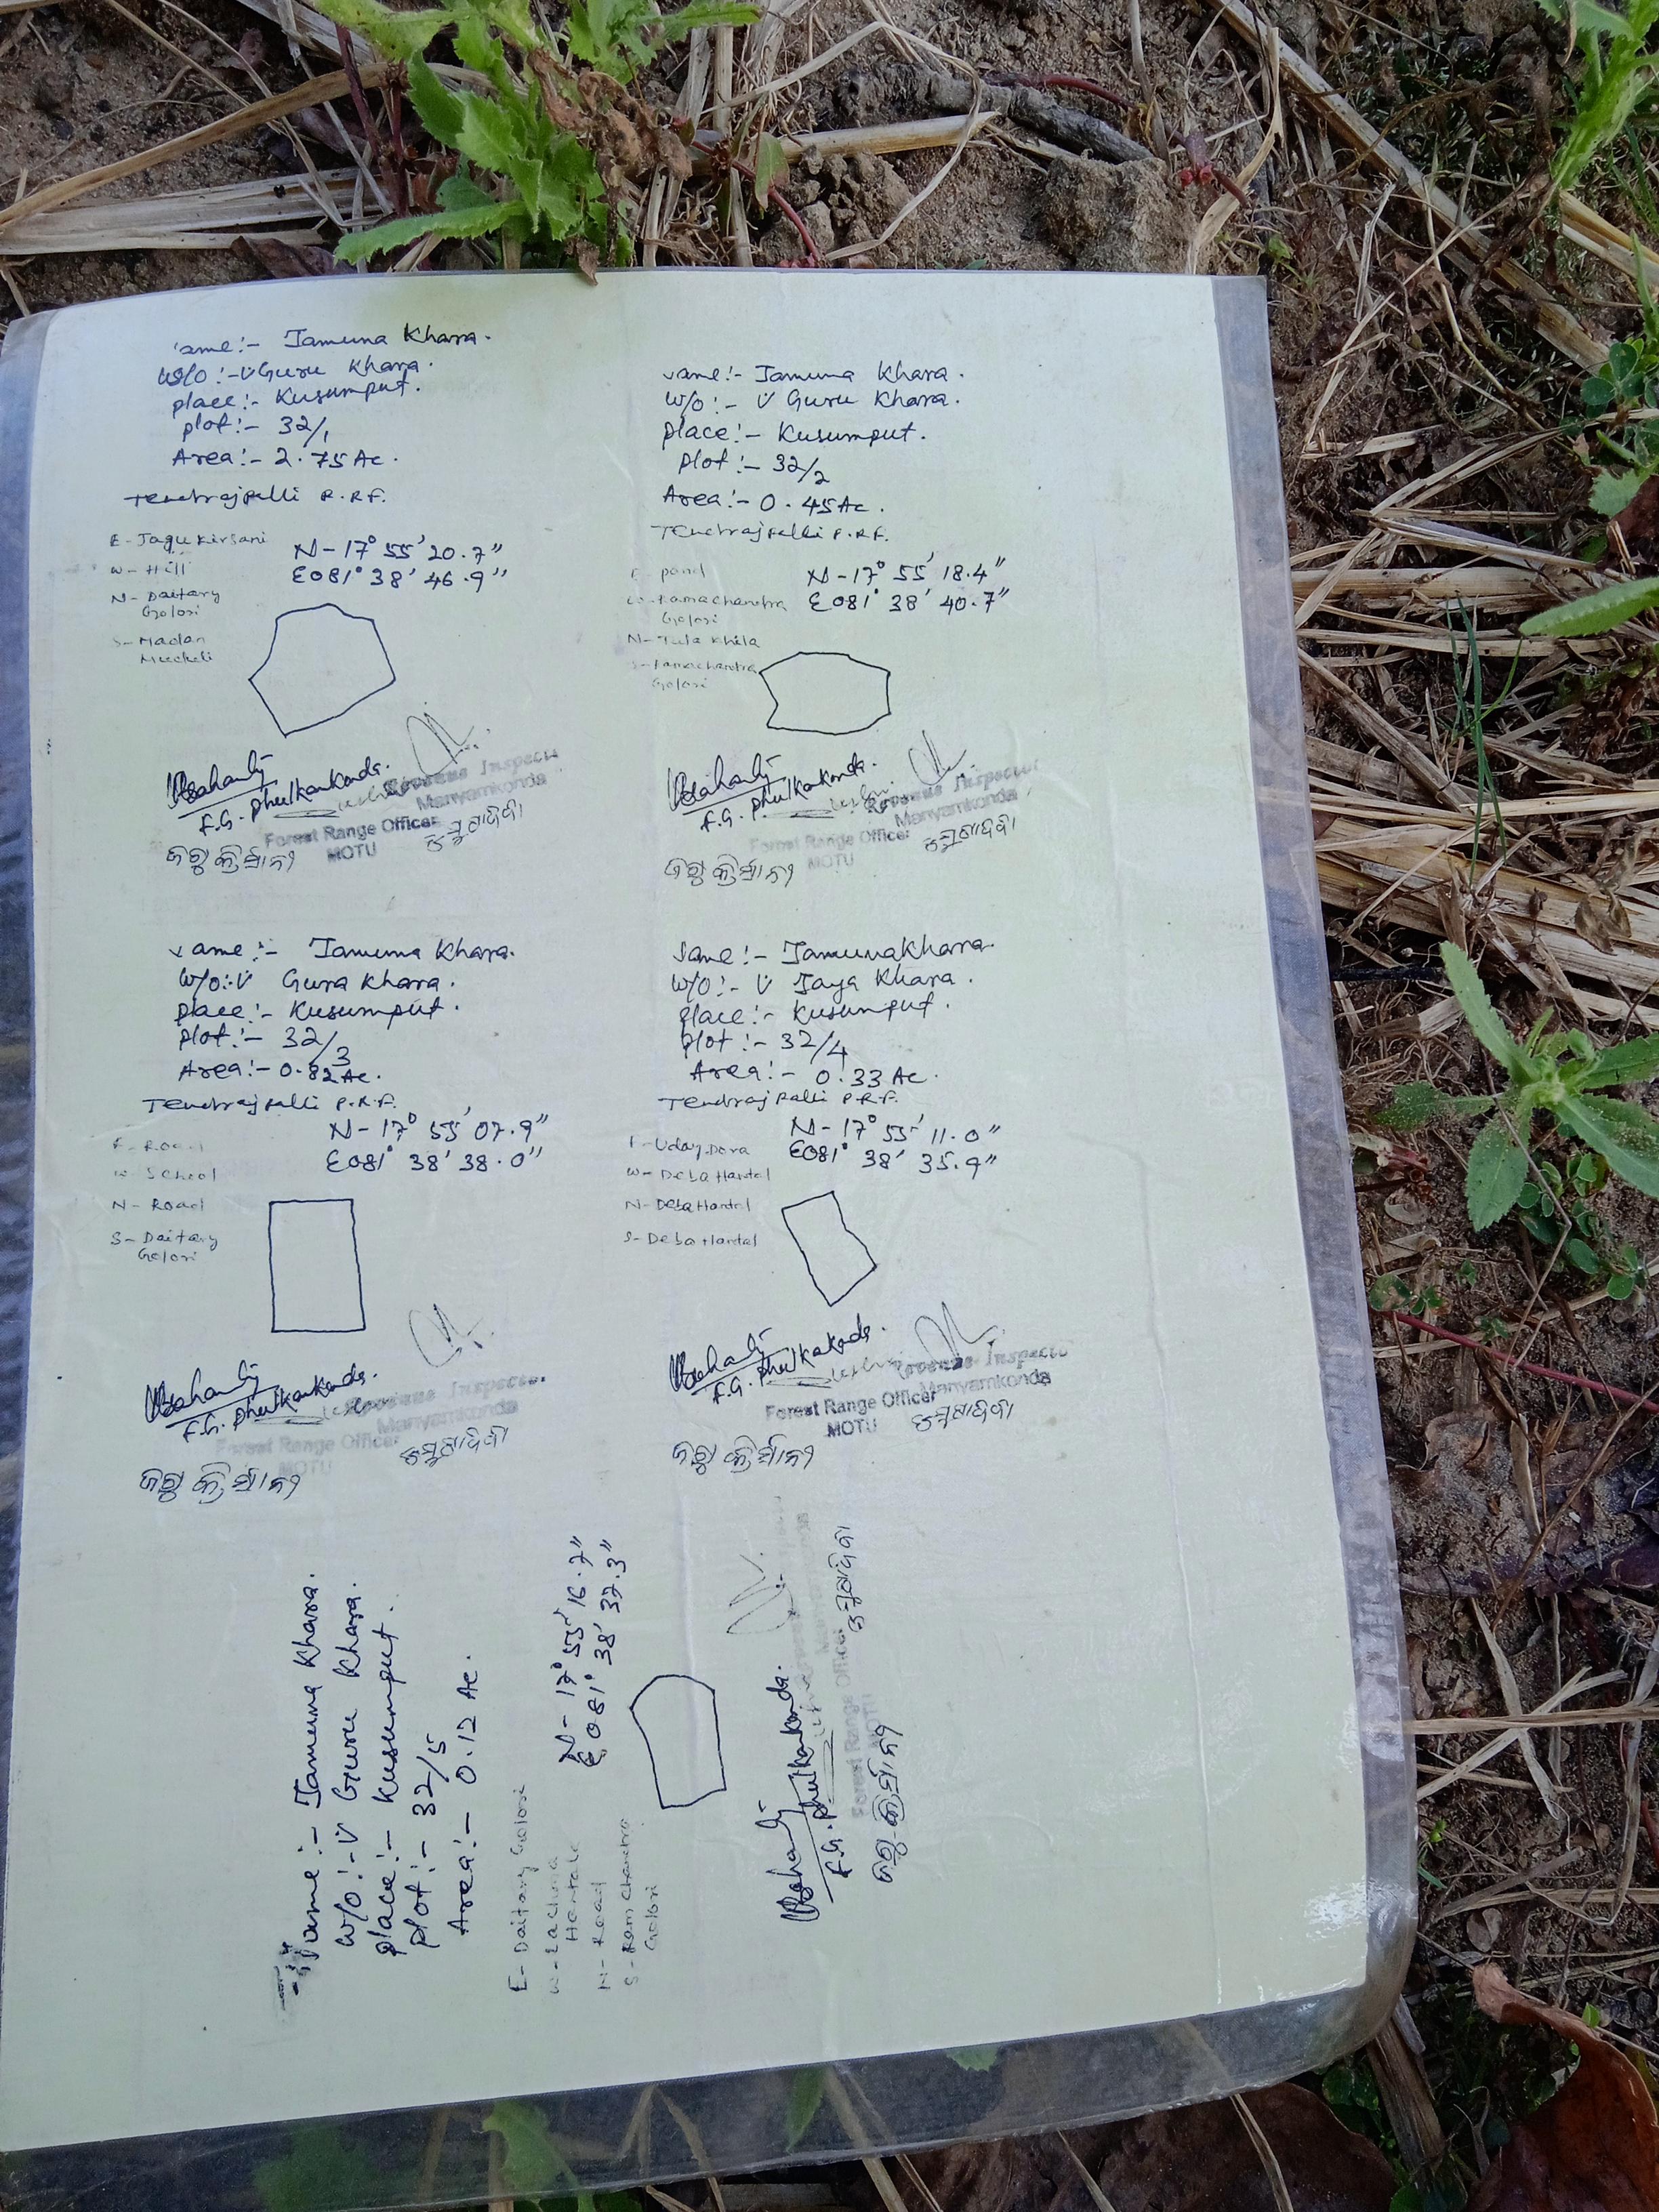 ame:- Jamuna Khara.
W/o:- Guru Khara.
place:- Kusumput.
plot:- 32/1
Area:- 2.75 Ac.
Tendrajpalli P.R.F.
E- Jagu Kirsani
W- Hill
N- Daitary
Golori
S- Madan
Muduli
N-17° 55' 20.7"
E081° 38' 46.9"
F.G. Phulkankonda.
Revenue Inspector
Manyamkonda
Forest Range Officer
MOTU
ame:- Jamuna Khara.
W/o:- Guru Khara.
place:- Kusumput.
plot:- 32/2
Area:- 0.45 Ac.
Tendrajpalli P.R.F.
E- pond
W- Ramachandra
Golori
N- Tula Khila
S- Ramachandra
Golori
N-17° 55' 18.4"
E081° 38' 40.7"
F.G. Phulkankonda.
Revenue Inspector
Manyamkonda
Forest Range Officer
MOTU
ame:- Jamuna Khara.
W/o:- Gura Khara.
place:- Kusumput.
plot:- 32/3
Area:- 0.82 Ac.
Tendrajpalli P.R.F.
E- Road
W- School
N- Road
S- Daitary
Golori
N-17° 55' 07.9"
E081° 38' 38.0"
F.G. Phulkankonda.
Revenue Inspector
Manyamkonda
Forest Range Officer
MOTU
ame:- Jamuna Khara.
W/o:- Jaya Khara.
place:- Kusumput.
plot:- 32/4
Area:- 0.33 Ac.
Tendrajpalli P.R.F.
E- Uday Dora
W- Deba Hantal
N- Deba Hantal
S- Deba Hantal
N-17° 55' 11.0"
E081° 38' 35.9"
F.G. Phulkakonda.
Revenue Inspector
Manyamkonda
Forest Range Officer
MOTU
ame:- Jamuna Khara.
W/o:- Guru Khara.
place:- Kusumput.
plot:- 32/5
Area:- 0.12 Ac.
E- Daitary Golori
W- Lachuna
Hantal
N- Road
S- Ram Chandra
Golori
N-17° 55' 16.7"
E081° 38' 37.3"
F.G. Phulkankonda.
Forest Range Officer
MOTU